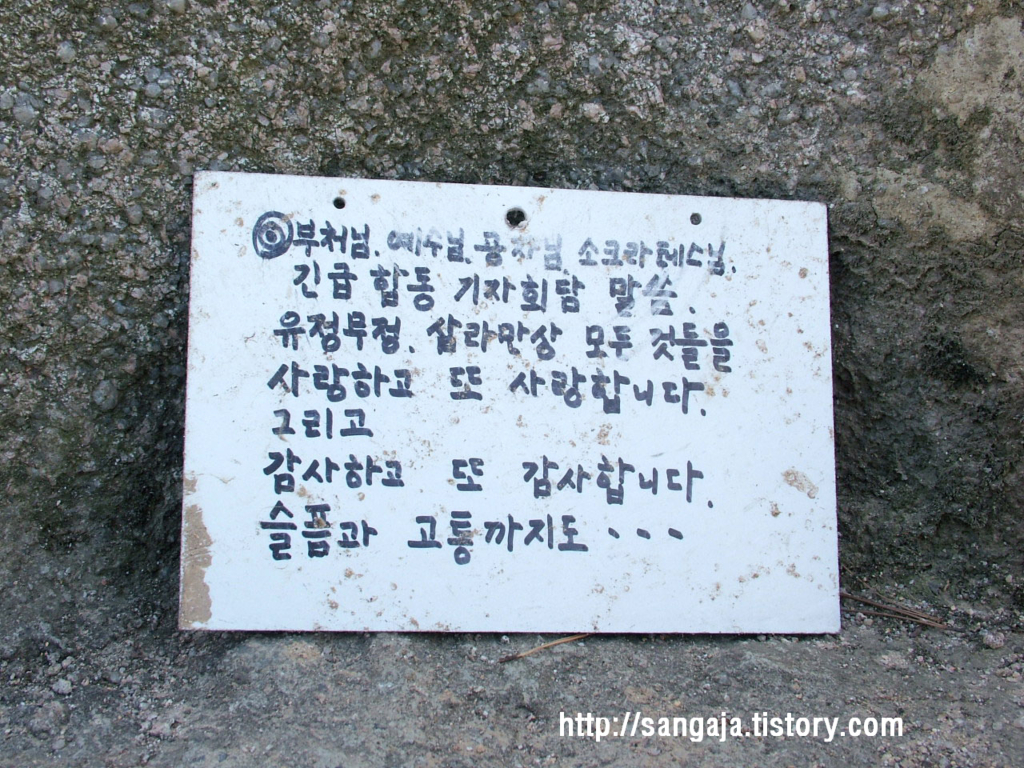 ◎부처님. 예수님. 공자님. 소크라테스님.
긴급 합동 기자회담 말씀.
유정무정. 삼라만상 모두 것들을
사랑하고 또 사랑합니다.
그리고
감사하고 또 감사합니다.
슬픔과 고통까지도 ...
http://sangaja.tistory.com